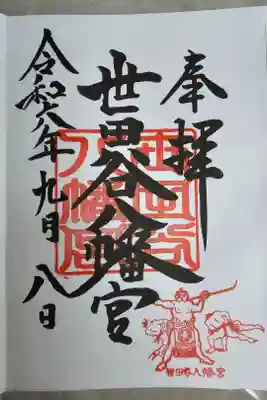 奉拝
世田谷八幡宮
令和六年九月八日
世田谷八幡宮
世田谷八幡宮